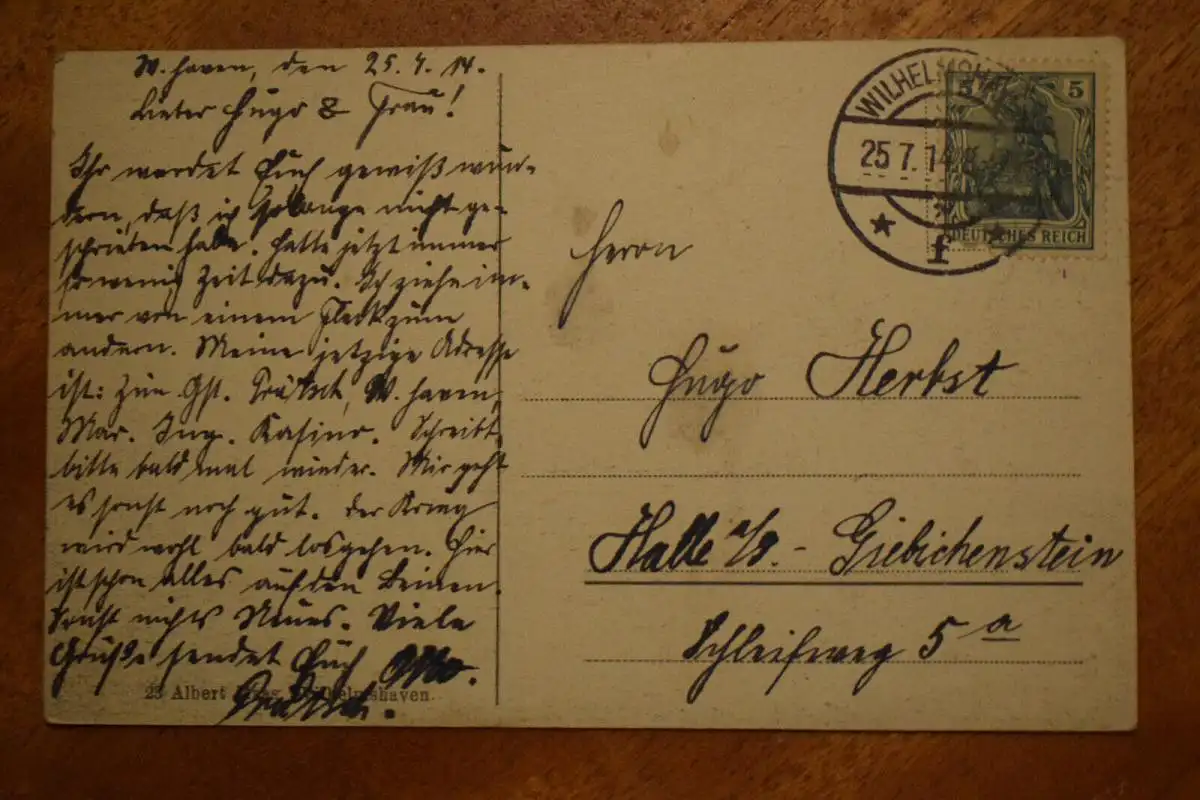 W. haven, den 25.7.14.
Lieber Hugo & Frau!
Ihr werdet Euch gewiß wun-
dern, daß ich solange nicht ge-
schrieben habe. Hatte jetzt immer
so wenig Zeit dazu. Ich ziehe im-
mer von einem Fleck zum
andern. Meine jetzige Adresse
ist: Zim. Gst. Trätsch, W. haven,
Mar. Ing. Kasino. Schreibt
bitte bald mal wieder. Mir geht
es sonst noch gut. Der Krieg
wird wohl bald losgehen. Hier
ist schon alles auf den Beinen.
Sonst nichts Neues. Viele
Grüße sendet Euch Otto.
23 Albert Wilhelmshaven.
WILHELMSHAVEN
25.7.14
* f *
5 5
DEUTSCHES REICH
Herrn
Hugo Herbst
Halle a/S. - Giebichenstein
Schleifweg 5 a